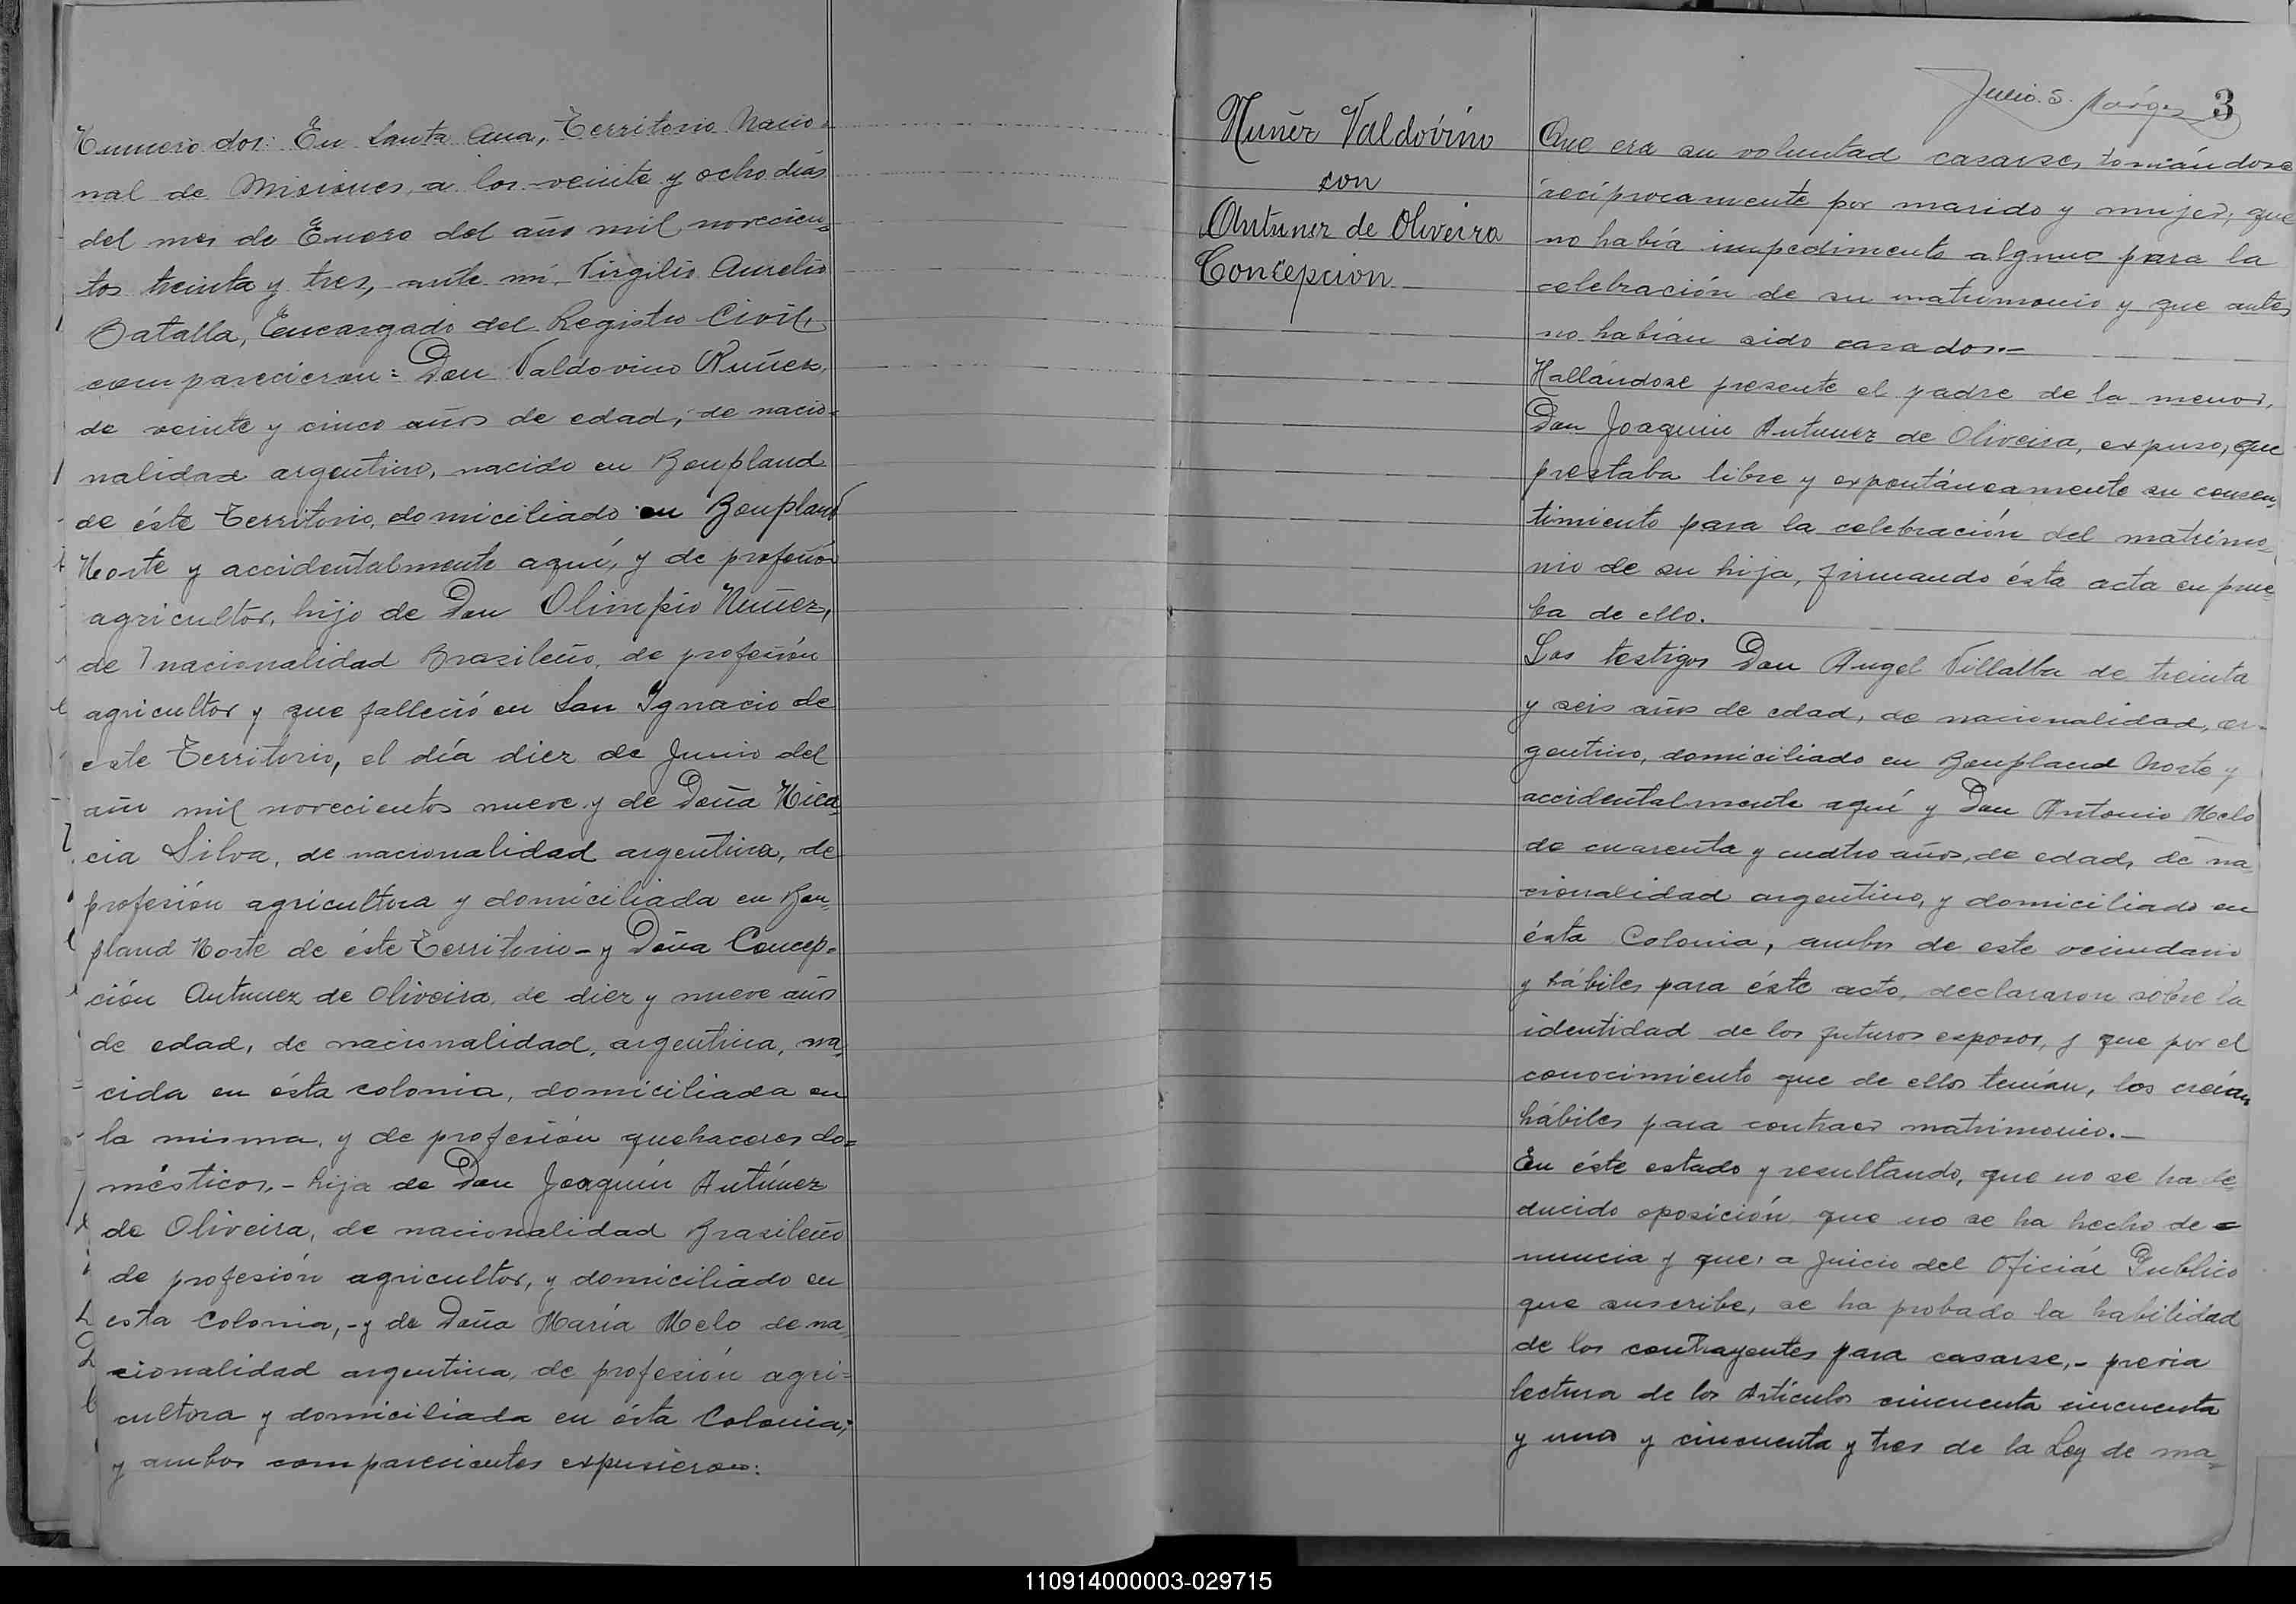 Numero dos: En Santa Ana, Territorio Nacio-
nal de Misiones, a los veinte y ocho dias
del mes de Enero del año mil novecien-
tos treinta y tres, ante mi, Virgilio Aurelio
Batalla, Encargado del Registro Civil,
comparecieron: Don Valdovino Nuñez,
de veinte y cinco años de edad, de nacio-
nalidad argentino, nacido en Bonpland
de éste Territorio, domiciliado en Bonpland
Norte y accidentalmente aquí, y de profesión
agricultor, hijo de Don Olimpio Nuñez,
de nacionalidad Brasileño, de profesión
agricultor y que falleció en San Ignacio de
este Territorio, el día diez de Junio del
año mil novecientos nueve y de Doña Nica-
cia Silva, de nacionalidad argentina, de
profesión agricultora y domiciliada en Bon-
pland Norte de éste Territorio - y Doña Concep-
ción Antunez de Oliveira, de diez y nueve años
de edad, de nacionalidad, argentina, na-
cida en ésta colonia, domiciliada en
la misma, y de profesión quehaceres do-
mésticos. - hija de Don Joaquín Antúnez
de Oliveira, de nacionalidad Brasileño
de profesión agricultor, y domiciliado en
esta Colonia, - y de Doña María Melo de na-
cionalidad argentina, de profesión agri-
cultora y domiciliada en ésta Colonia;
y ambos comparecientes expusieron:
Julio S.
3
Nuñez Valdovino
con
Antunez de Oliveira
Concepcion
Que era su voluntad casarse, tomándose
recíprocamente por marido y mujer, que
no había impedimento alguno para la
celebración de su matrimonio y que antes
no habían sido casados.-
Hallándose presente el padre de la menor,
Don Joaquin Antunez de Oliveira, expuso, que
prestaba libre y expontáneamente su consen-
timiento para la celebración del matrimo-
nio de su hija, firmando ésta acta en prue-
ba de ello.
Los testigos Don Angel Villalba de treinta
y seis años de edad, de nacionalidad, ar-
gentino, domiciliado en Bonpland Norte y
accidentalmente aquí y Don Antonio Melo
de cuarenta y cuatro años, de edad, de na-
cionalidad argentino, y domiciliado en
ésta Colonia, ambos de este vecindario
y hábiles para éste acto, declararon sobre la
identidad de los futuros esposos, y que por el
conocimiento que de ellos tenían, los creían
hábiles para contraer matrimonio.-
En éste estado y resultando, que no se ha de-
ducido oposición, que no se ha hecho de-
nuncia y que, a juicio del Oficial Publico
que suscribe, se ha probado la habilidad
de los contrayentes para casarse, - previa
lectura de los Artículos cincuenta cincuenta
y uno y cincuenta y tres de la Ley de ma-
110914000003-029715